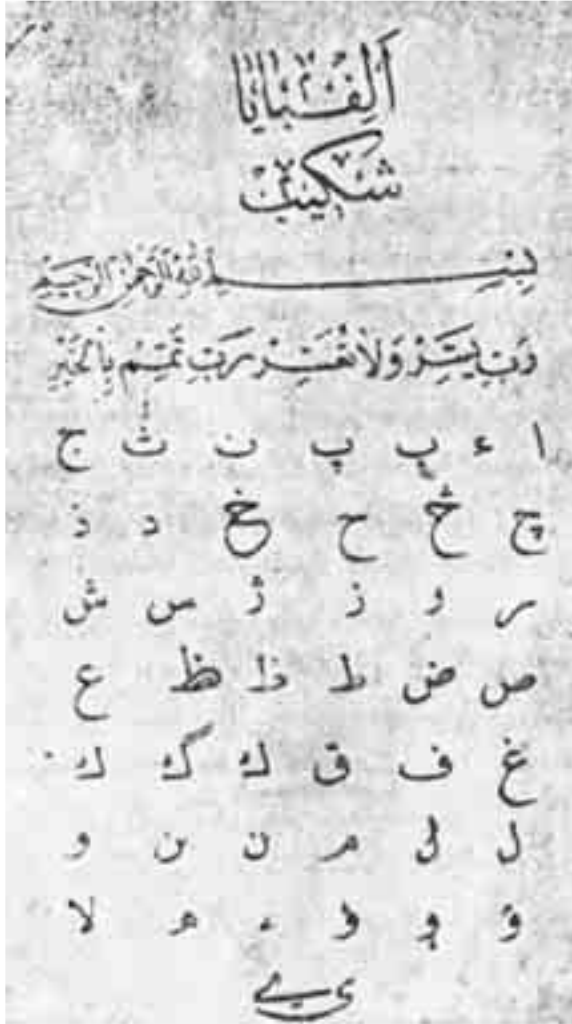 اَلِفْبَايَا
شكيپ
بِسْمِ اللهِ الرَّحْمٰنِ الرَّحِيمِ
رَبِّ يَسِّرْ وَلَا تُعَسِّرْ رَبِّ تَمِّمْ بِالْخَيْرِ
ا ء ب پ ت ث ج
چ څ ح خ د ذ
ر ز ژ س ش
ص ض ط ظ ظ ع
غ ف ق ك گ ك
ل م ن ن و
و ء ه لا
ى ے